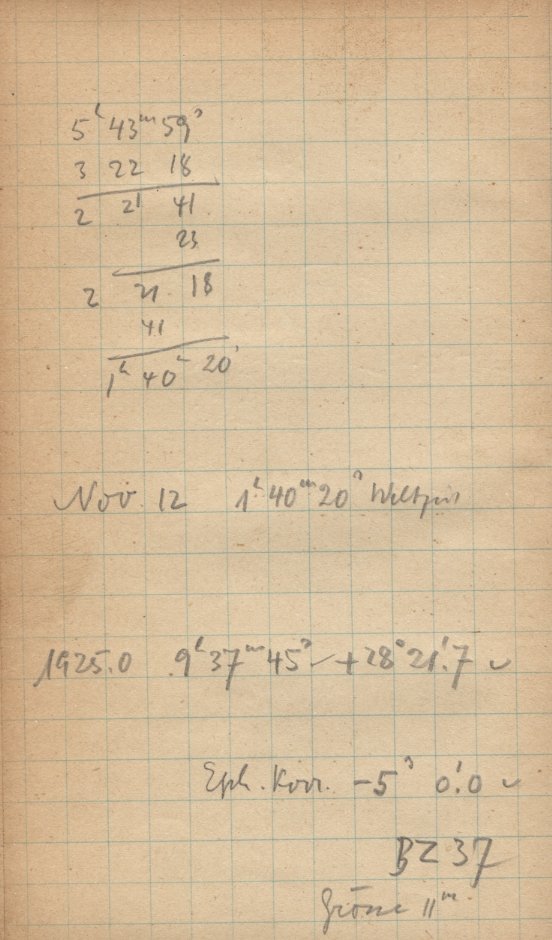 5ʰ 43ᵐ 59ˢ
3 22 18
2 21 41
23
2 21 18
41
1ʰ 40ᵐ 20ˢ
Nov. 12 1ʰ 40ᵐ 20ˢ Weltzeit
1925.0 9ʰ 37ᵐ 45ˢ ✓ +28° 21'.7 ✓
Eph. Korr. -5ˢ 0'.0 ✓
BZ 37
Grösse 11ᵐ